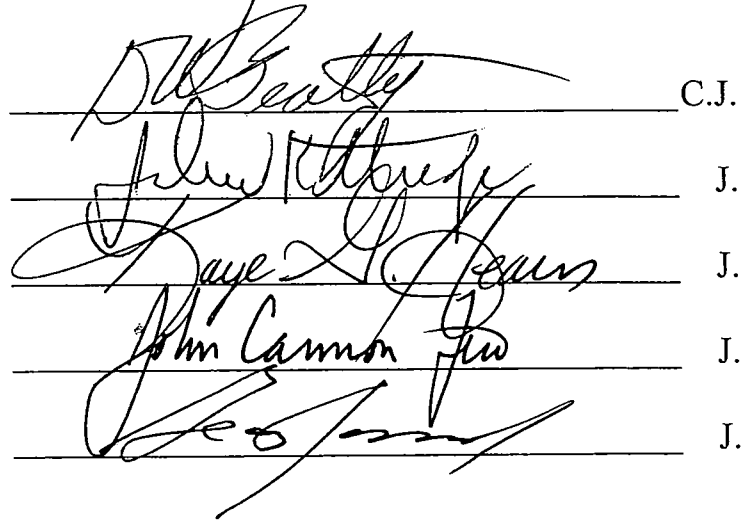 DW Beatty C.J.
John Kittredge J.
Kaye G. Hearn J.
John Cannon Few J.
Geo James J.